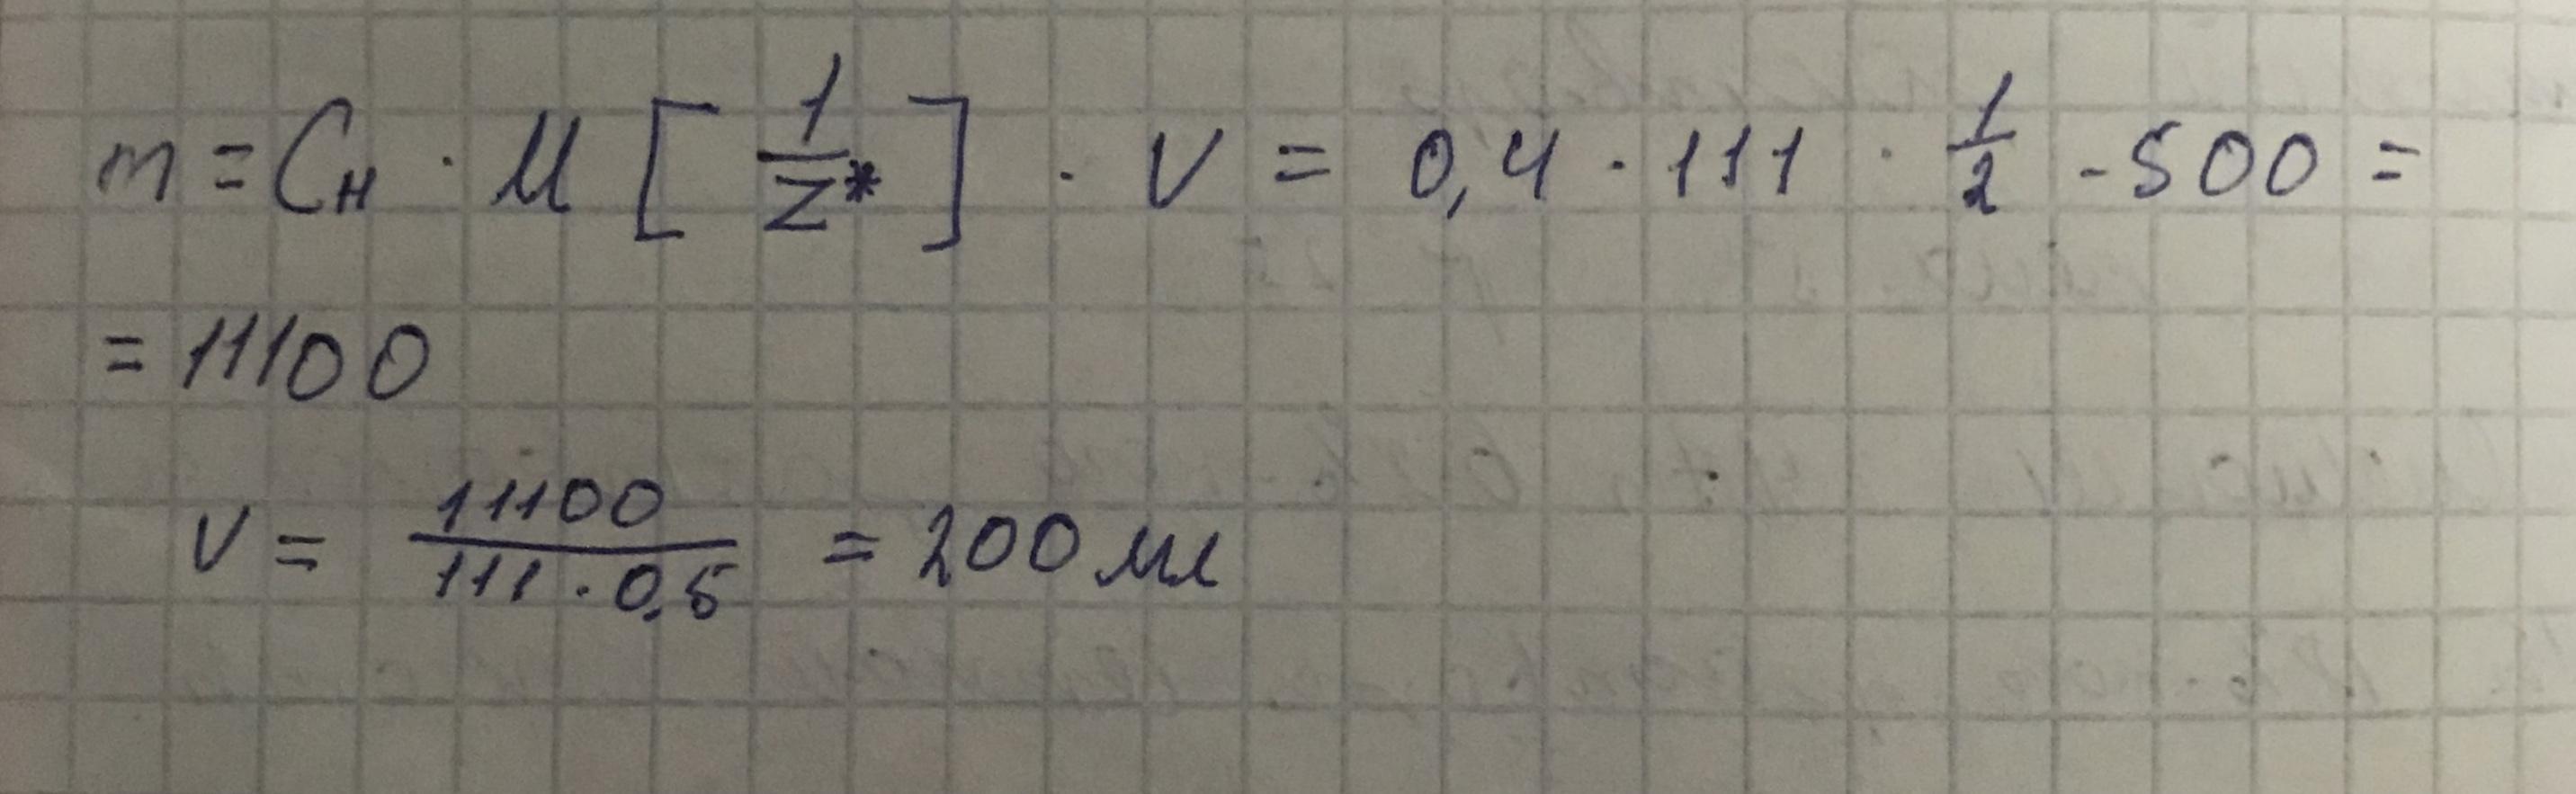 m = Cн · M [ 1/z* ] · V = 0,4 · 111 · 1/2 · 500 =
= 11100
V = 11100 / 111 · 0,5 = 200 мл